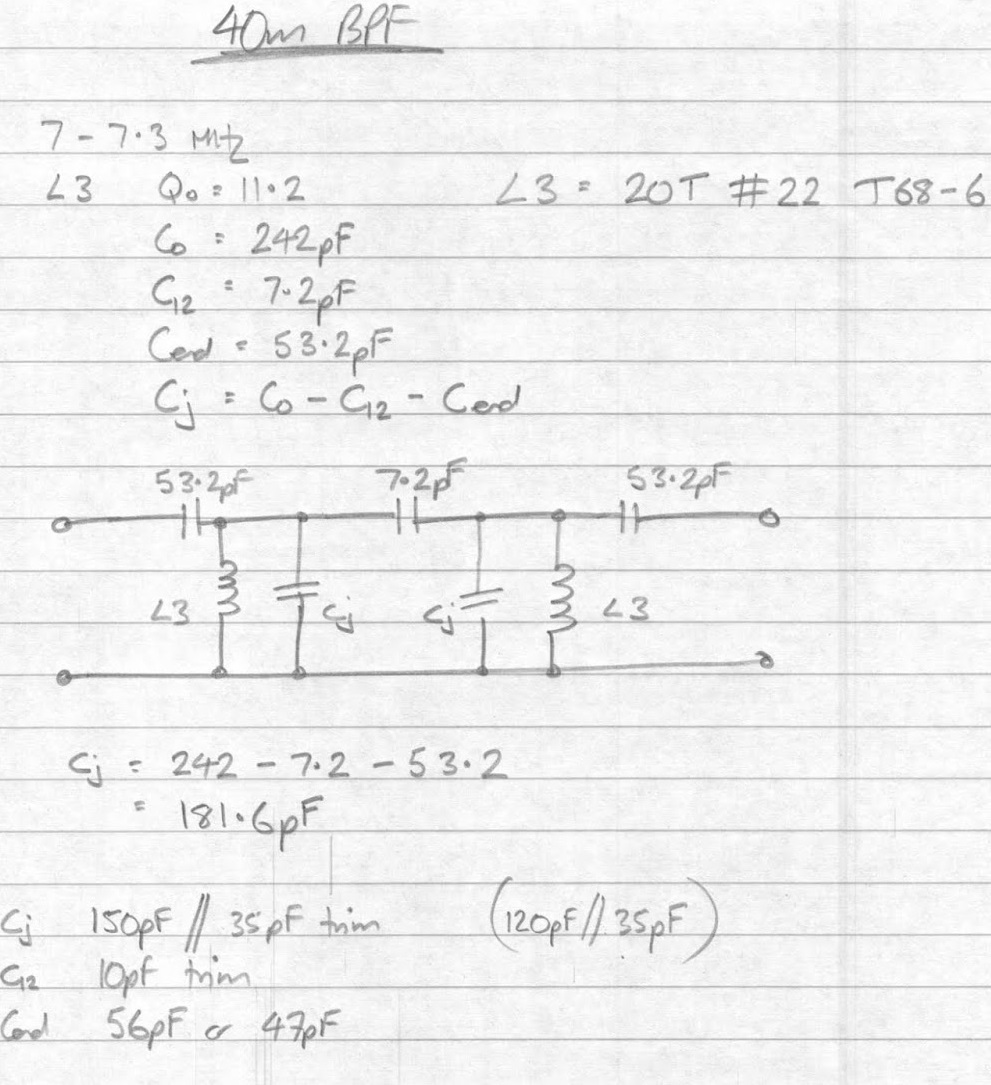 40m BPF
7 - 7.3 MHz
L3 Q₀ = 11.2 L3 = 20T #22 T68-6
C₀ = 242pF
C₁₂ = 7.2pF
Cend = 53.2pF
Cj = C₀ - C₁₂ - Cend
53.2pF 7.2pF 53.2pF
L3 Cj Cj L3
Cj = 242 - 7.2 - 53.2
= 181.6pF
Cj 150pF // 35pF trim (120pF // 35pF)
C₁₂ 10pf trim
Cend 56pF or 47pF